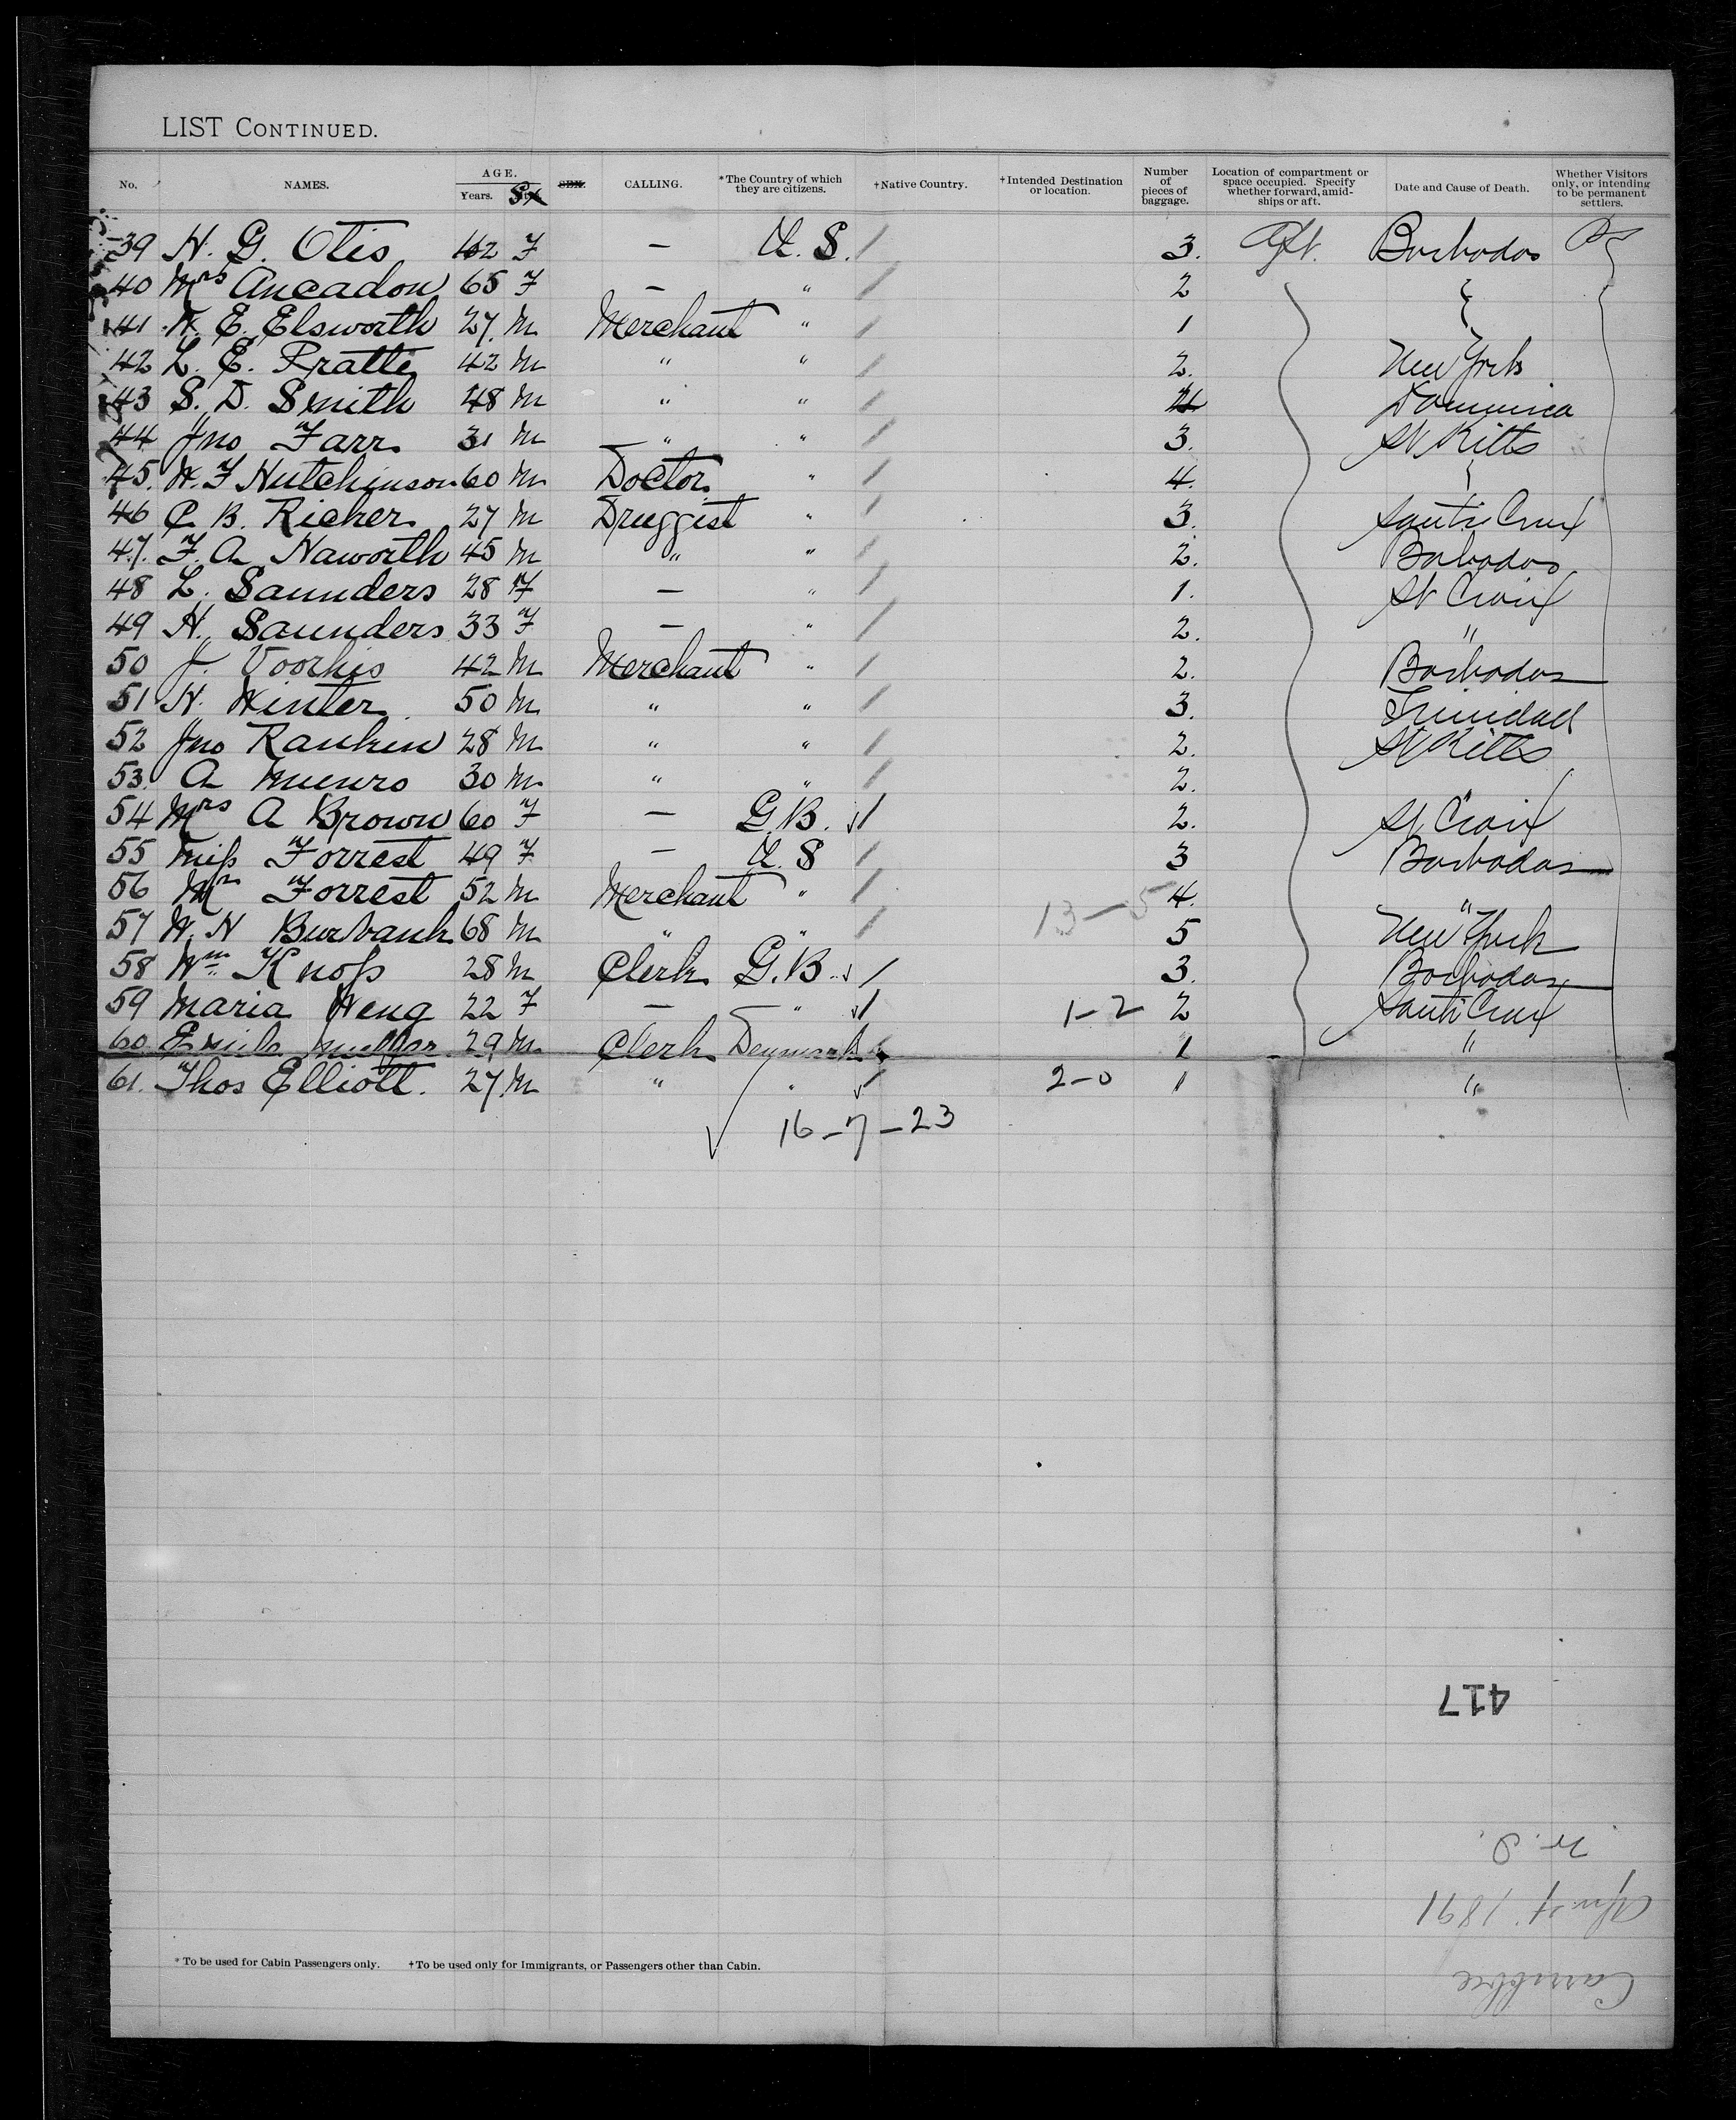 LIST CONTINUED.
No. NAMES. AGE. Years. Sx SEX. CALLING. *The Country of which they are citizens. †Native Country. †Intended Destination or location. Number of pieces of baggage. Location of compartment or space occupied. Specify whether forward, amidships or aft. Date and Cause of Death. Whether Visitors only, or intending to be permanent settlers.
39 H. G. Otis F — U. S. / 3. Aft. Barbados
40 Mrs Ancadon 65 F — " / 2
41 W. E. Elsworth 27 M Merchant " / 1
42 L. E. Pratte 42 M " " / 2. New York
43 S. D. Smith 48 M " " / Dominica
44 Jno Farr 31 M " " / 3. St Kitts
45. W. F Hutchinson 60 M Doctor " / 4.
46 C. B. Richer 27 M Druggist " / 3. Santa Cruz
47. F. A Haworth 45 M " " / 2. Barbados
48 L. Saunders 28 F — " / 1. St Croix
49 H. Saunders 33 F — " / 2. "
50 J. Voorhis 42 M Merchant " / 2. Barbados
51 H. Winter 50 M " " / 3. Trinidad
52 Jno Rankin 28 M " " / 2. St Kitts
53. A Munro 30 M " " / 2. "
54 Mrs A Brown 60 F — G.B. / 2. St Croix
55 Miss Forrest 49 F — U. S / 3 Barbados
56 Mr Forrest 52 M Merchant " / 13-5 4. "
57 W. H Burbank 68 M " " / 5 New York
58 Wm Knoss 28 M Clerk G.B. / 3. Barbados
59 Maria Heng 22 F — " / 1-2 2 Santa Cruz
60 29 M Clerk Denmark 1 "
61. Thos Elliott. 27. M " " / 2-0 1 "
16-7-23
417
1891
* To be used for Cabin Passengers only. †To be used only for Immigrants, or Passengers other than Cabin.